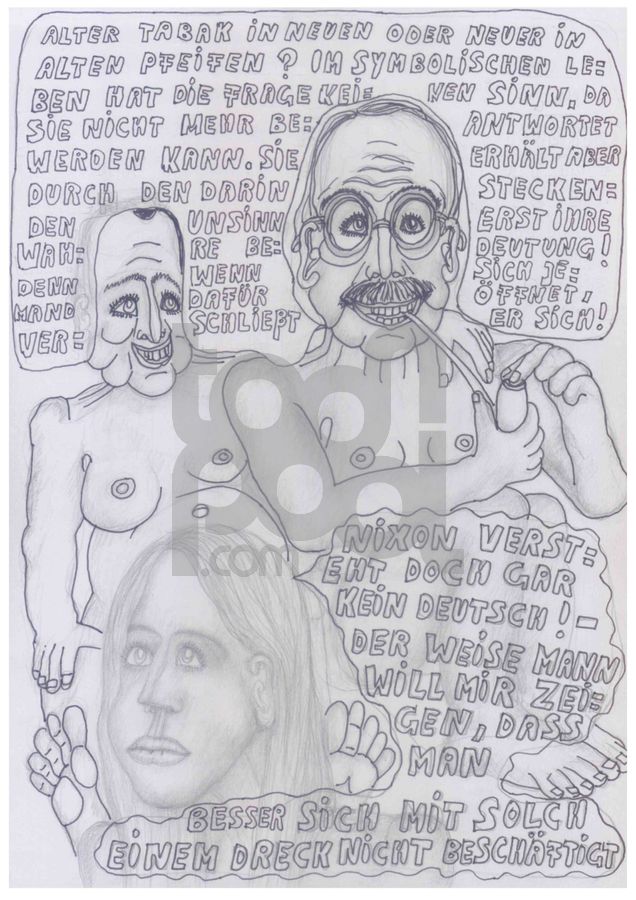 ALTER TABAK IN NEUEN ODER NEUER IN
ALTEN PFEIFEN? IM SYMBOLISCHEN LE:
BEN HAT DIE FRAGE KEI: NEN SINN, DA
SIE NICHT MEHR BE: ANTWORTET
WERDEN KANN. SIE ERHÄLT ABER
DURCH DEN DARIN STECKEN:
DEN UNSINN ERST IHRE
WAH: RE BE: DEUTUNG!
DENN WENN SICH JE:
MAND DAFÜR ÖFFNET,
VER: SCHLIEßT ER SICH!
toon
pool
.com
NIXON VERST:
EHT DOCH GAR
KEIN DEUTSCH! –
DER WEISE MANN
WILL MIR ZEI:
GEN, DASS
MAN
BESSER SICH MIT SOLCH
EINEM DRECK NICHT BESCHÄFTIGT